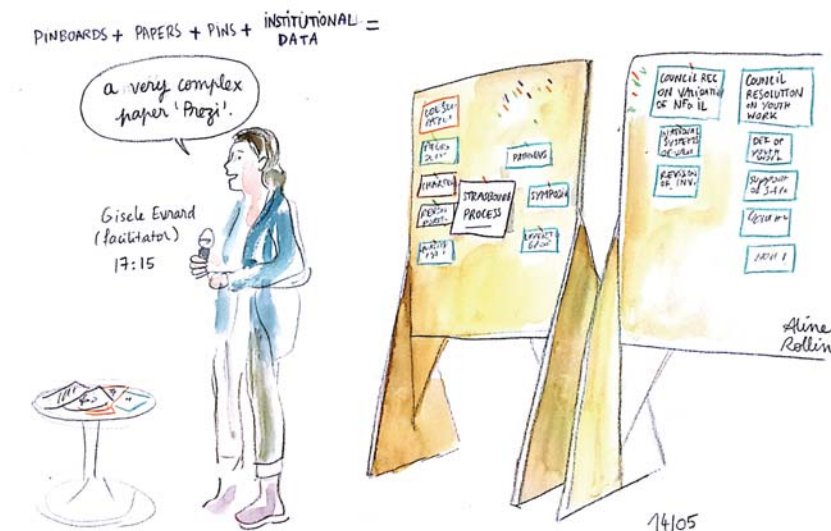 PINBOARDS + PAPERS + PINS + INSTITUTIONAL DATA =
a very complex
paper 'Prezi'.
Gisele Evrard
(facilitator)
17:15
CHARTER
STRASBOURG
PROCESS
SYMPOSIA
COUNCIL REC
ON VALIDATION
OF NFO IL
NATIONAL
SYSTEMS
REVISION
OF
COUNCIL
RESOLUTION
ON YOUTH
WORK
DEF OF
YOUTH
WORK
Aline
Rollin
14/05